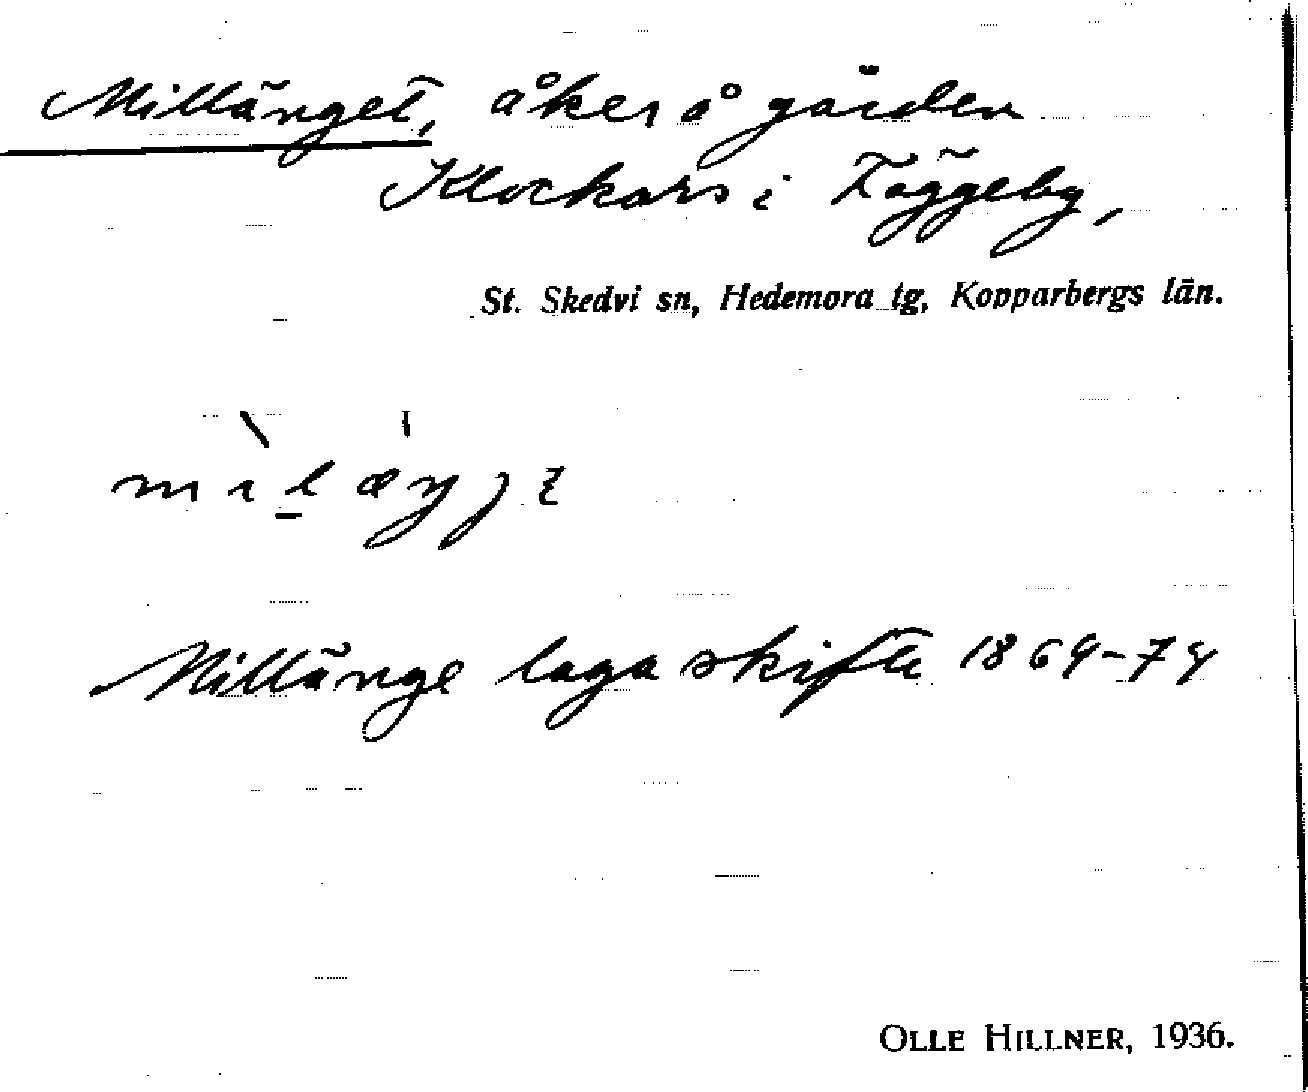 Millänget, åker å gården
Klockars i Täggeby,
St. Skedvi sn, Hedemora tg, Kopparbergs län.
Millänge laga skifte 1864-74
OLLE HILLNER, 1936.